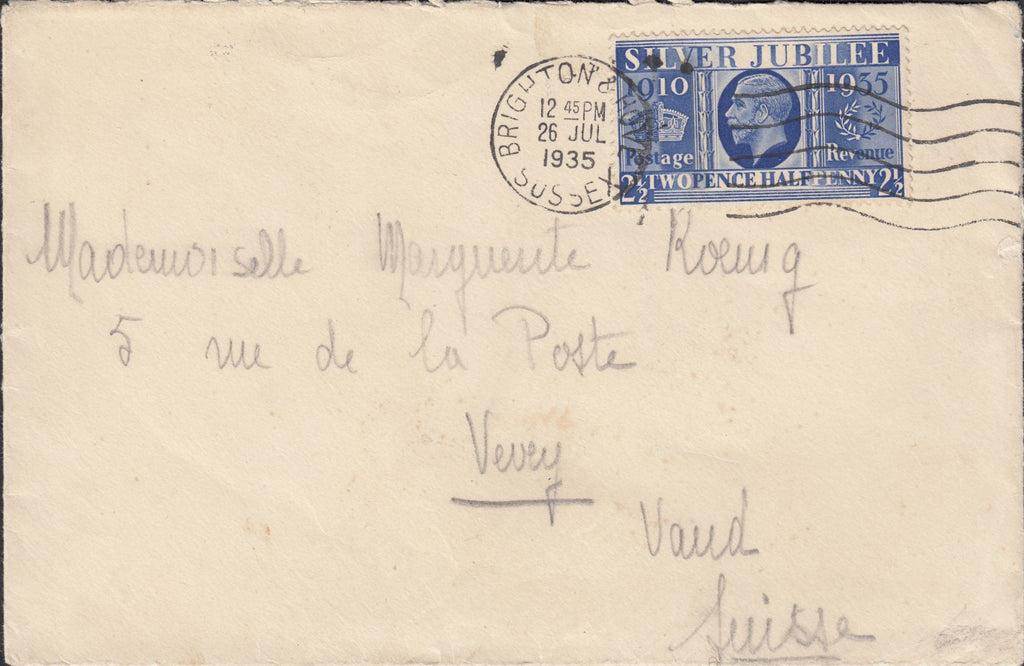 SILVER JUBILEE
1910 1935
Postage Revenue
2½ TWO PENCE HALFPENNY 2½
BRIGHTON & HOVE
12 45 PM
26 JUL
1935
SUSSEX
Mademoiselle Marguerite Koenig
5 rue de la Poste
Vevey
Vaud
Suisse